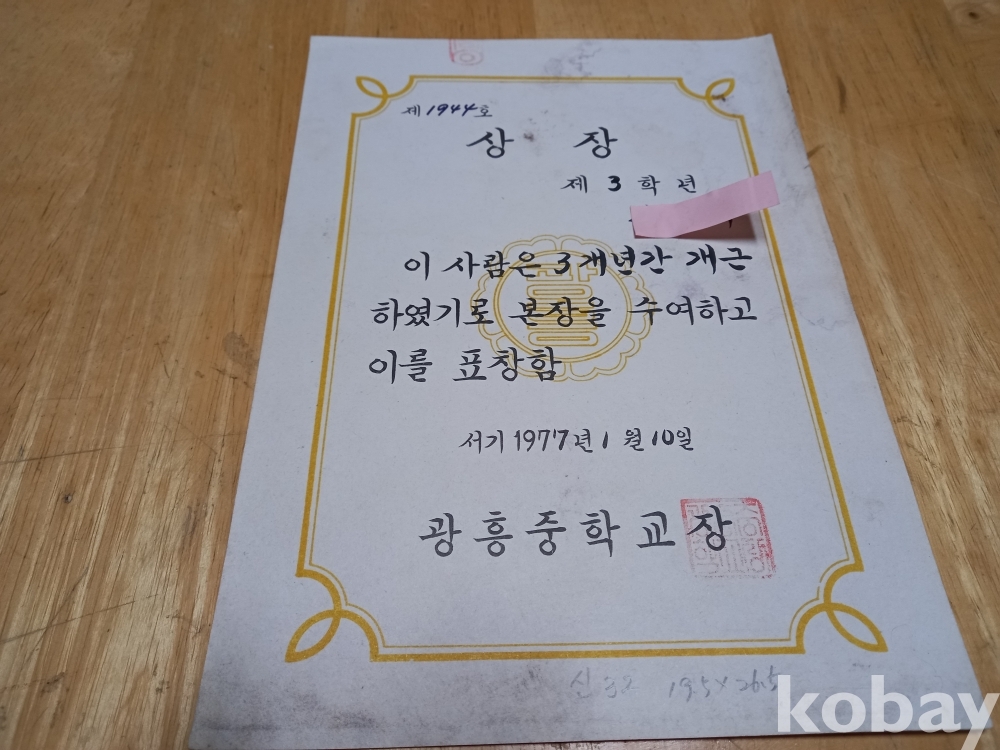 제1944호
상 장
제 3 학 년
이 사람은 3개년간 개근
하였기로 본장을 수여하고
이를 표창함
서기 1977년 1월 10일
광흥중학교장
19.5×26.5
kobay